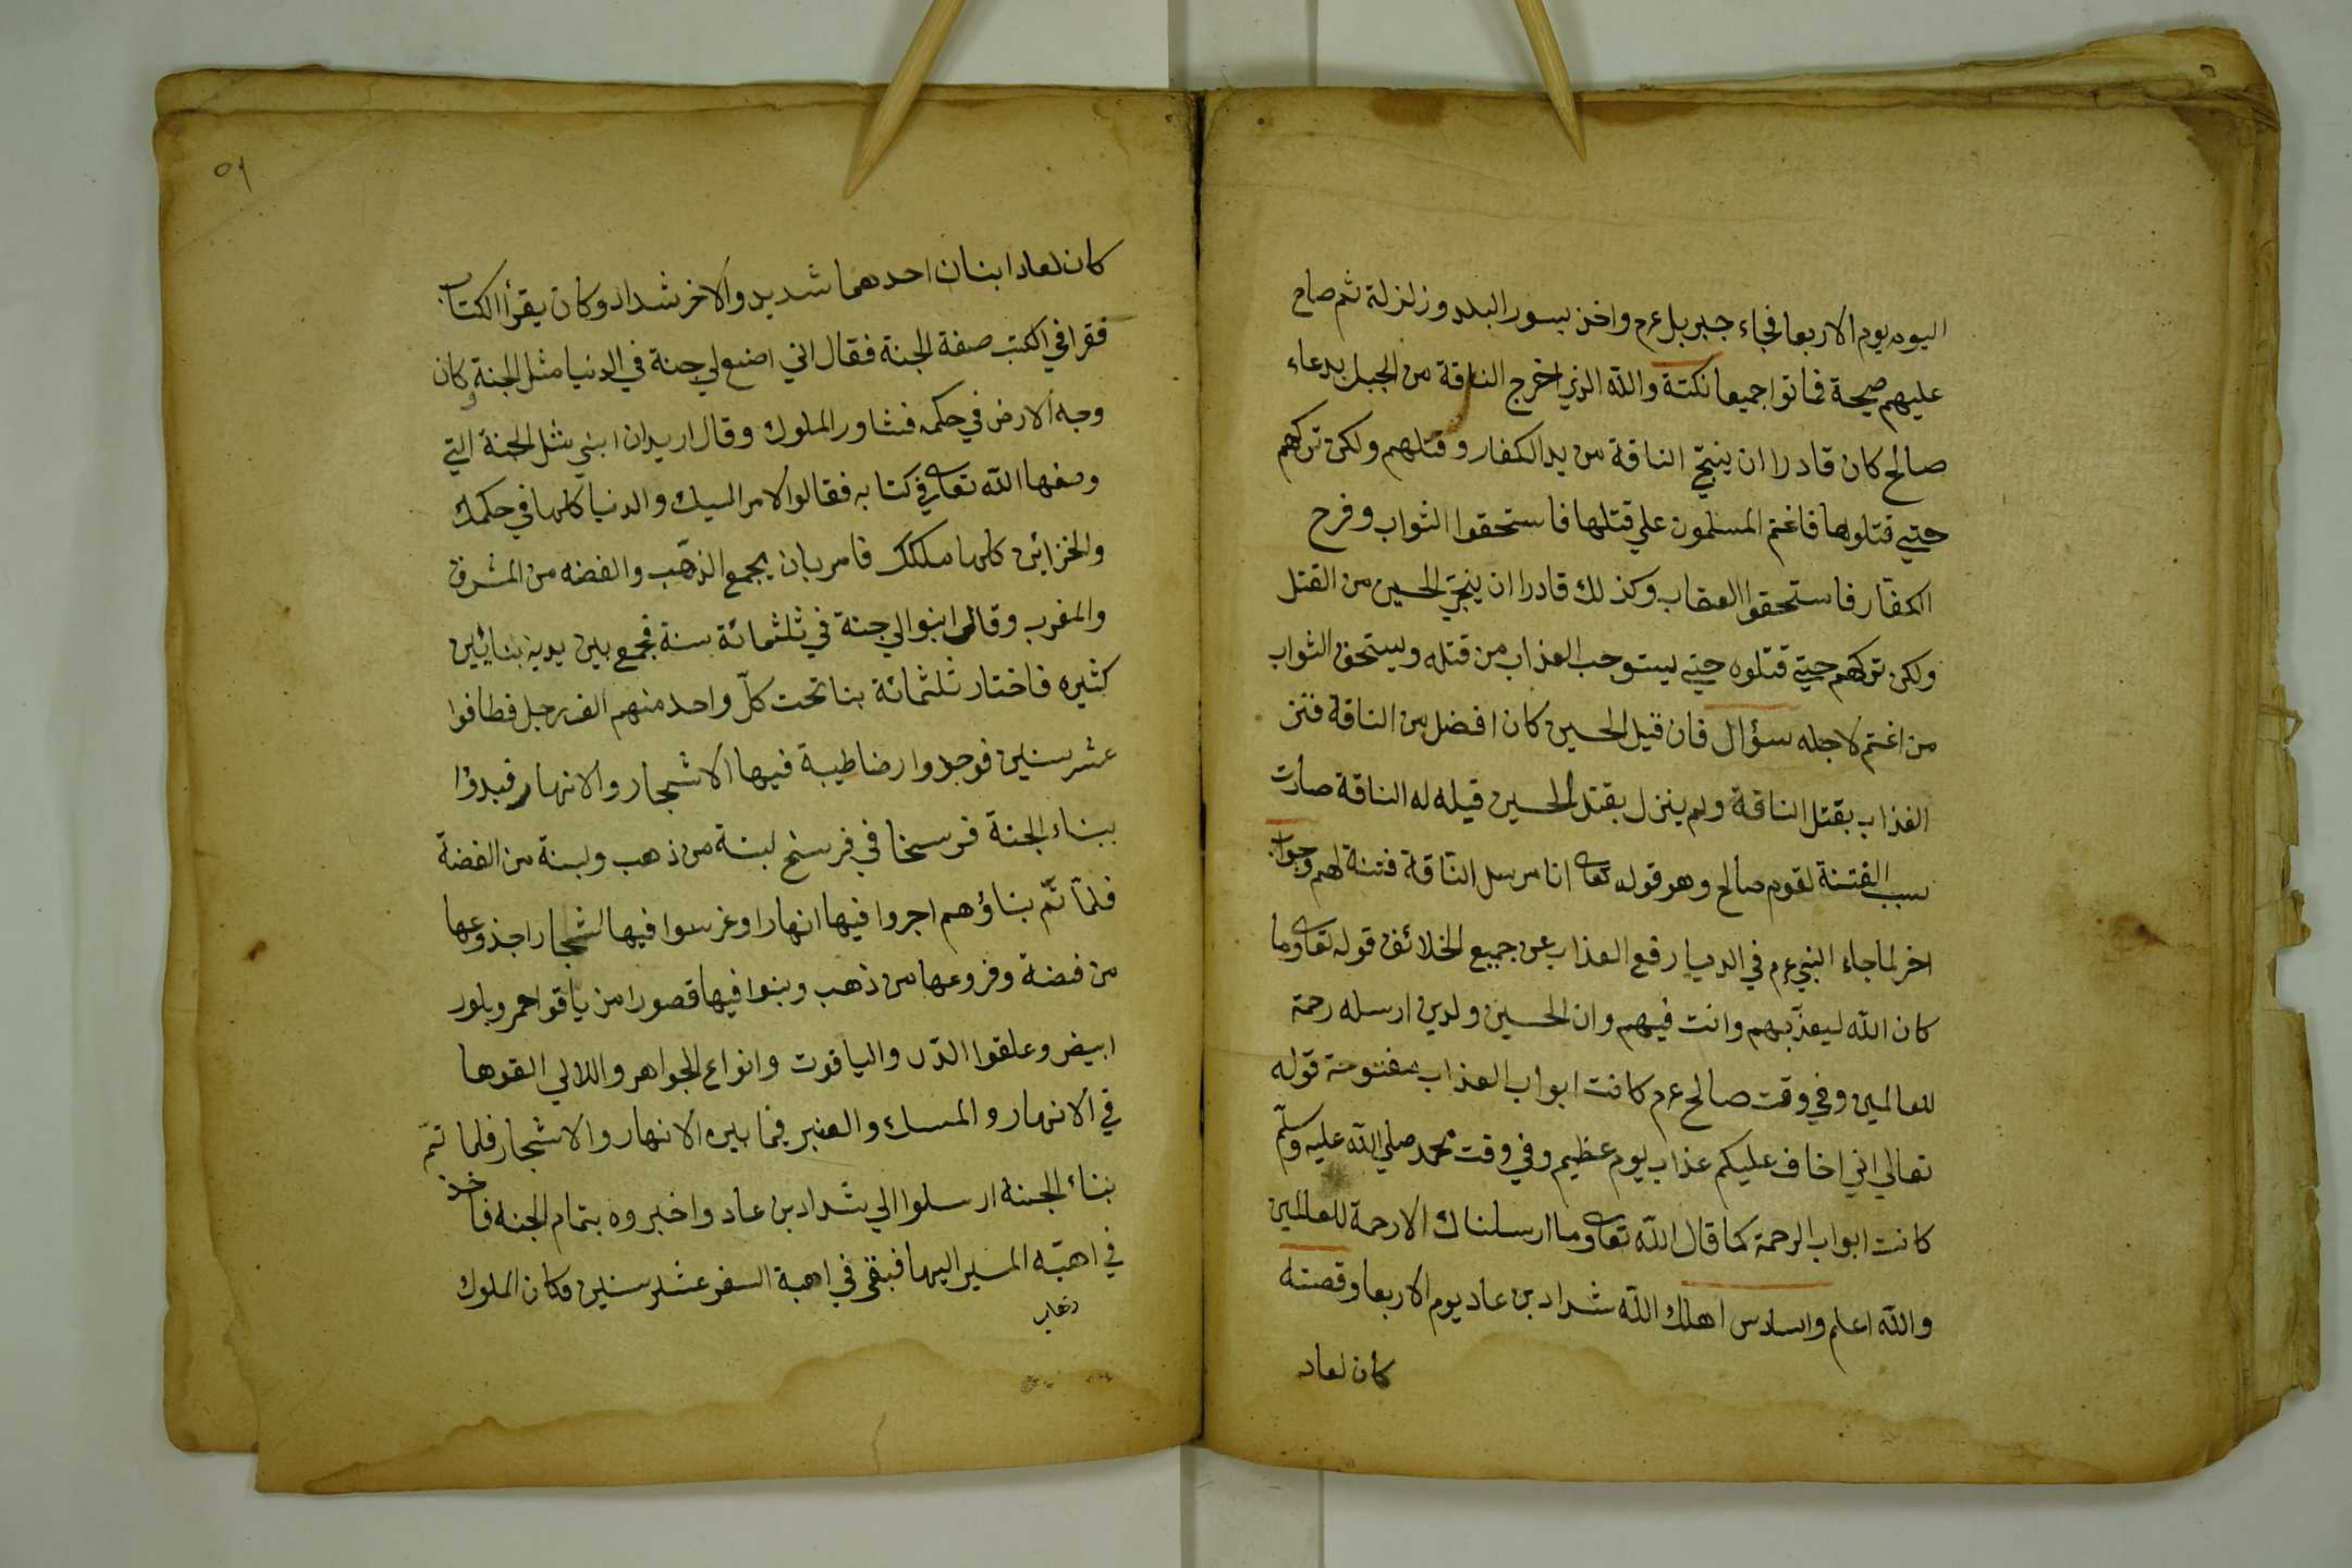 اليوم يوم الاربعا فجاء جبريل عرم واخذ بسور البلد وزلزلة ثم صاح
عليهم صيحة فماتوا جميعا نكتة والله الذي اخرج الناقة من الجبل بدعاء
صالح كان قادرا ان ينجي الناقة من يد الكفار وقتلهم ولكن تركهم
حتي قتلوها فاغتم المسلمون علي قتلها فاستحقوا الثواب وفرح
الكفار فاستحقوا العقاب وكذلك قادرا ان ينجي الحسين من القتل
ولكن تركهم حتي قتلوه حتي يستوجب العذاب من قتله ويستحق الثواب
من اغتم لاجله سؤال فان قيل الحسين كان افضل من الناقة فنزل
العذاب بقتل الناقة ولم ينزل بقتل الحسين قيل له الناقة صارت
سبب الفتنة لقوم صالح وهو قوله تعا انا مرسل الناقة فتنة لهم وجواب
اخر لما جاء النبي عرم في الدنيا رفع العذاب عن جميع الخلائق قوله تعا وما
كان الله ليعذبهم وانت فيهم وان الحسين ولدين ارسله رحمة
للعالمين وفي وقت صالح عرم كانت ابواب العذاب مفتوحة قوله
تعالي اني اخاف عليكم عذاب يوم عظيم وفي وقت محمد صلي الله عليه وسلم
كانت ابواب الرحمة كما قال الله تعا وما ارسلناك الا رحمة للعالمين
والله اعلم والسادس اهلك الله شداد بن عاد يوم الاربعا وقصته
كان لعاد
٥٩
كان لعاد ابنان احدهما شديد والاخر شداد وكان يقرأ الكتاب
فقرا في الكتب صفة الجنة فقال اني اصنع لي جنة في الدنيا مثل الجنة وكان
وجه الارض في حكمه فشاور الملوك وقال اريد ان ابني مثل الجنة التي
وصفها الله تعا في كتابه فقالوا الامر اليك والدنيا كلها في حكمك
والخزائن كلها ملكك فامر بان يجمع الذهب والفضه من المشرق
والمغرب وقال ابنوا لي جنة في ثلثمائة سنة فجمع بين يديه بنائين
كثيره فاختار ثلثمائة بنا تحت كل واحد منهم الف رجل فطافوا
عشر سنين فوجدوا ارضا طيبة فيها الاشجار والانهار فبدؤا
ببناء الجنة فرسخا في فرسخ لبنة من ذهب ولبنة من الفضة
فلما تم بناؤهم اجروا فيها انهارا وغرسوا فيها اشجارا جذوعها
من فضة وفروعها من ذهب وبنوا فيها قصورا من ياقو احمر وبلور
ابيض وعلقوا الدر والياقوت وانواع الجواهر واللالي القوها
في الانهار والمسك والعنبر فيما بين الانهار والاشجار فلما تم
بناء الجنة ارسلوا الي شداد بن عاد واخبروه بتمام الجنه فاخذ
في اهبه المسير اليها فبقي في اهبة السفر عشر سنين وكان الملوك